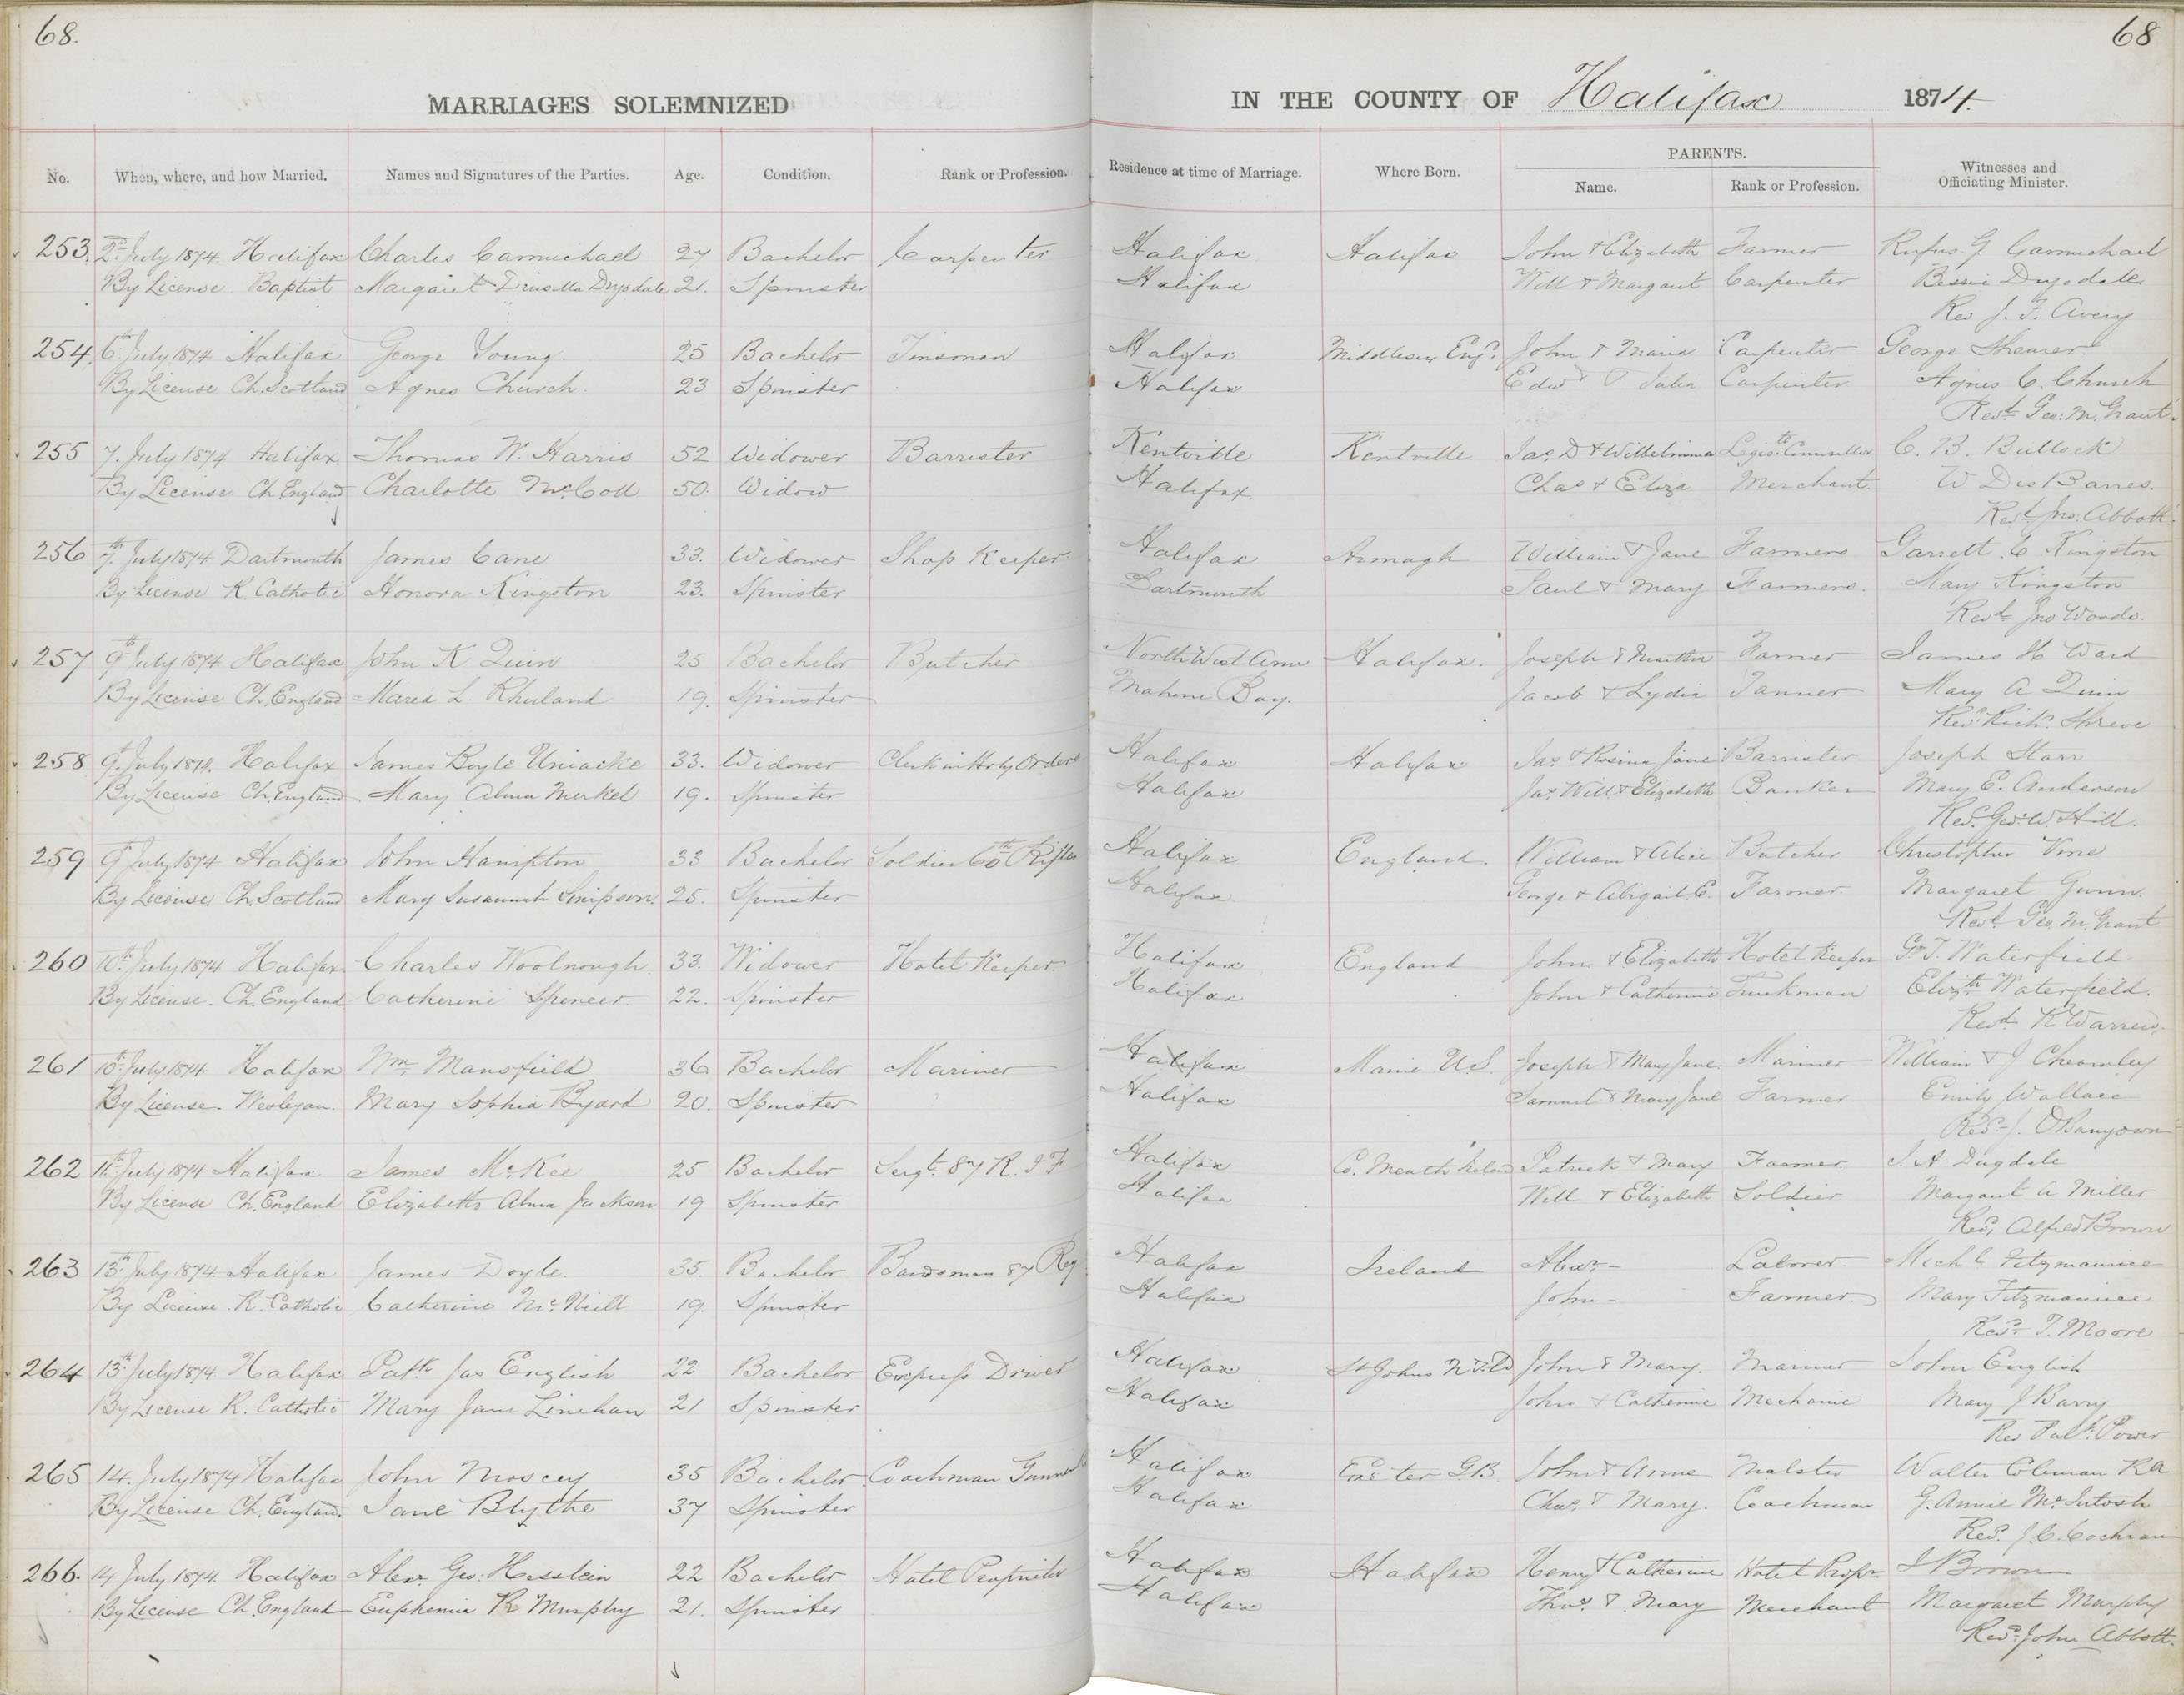 68.
68
MARRIAGES SOLEMNIZED IN THE COUNTY OF Halifax 1874.
No. When, where, and how Married. Names and Signatures of the Parties. Age. Condition. Rank or Profession. Residence at time of Marriage. Where Born. PARENTS. Name. Rank or Profession. Witnesses and Officiating Minister.
253. 2nd July 1874 Halifax Charles Carmichael 27 Bachelor Carpenter Halifax Halifax John & Elizabeth Farmer Rufus G Carmichael
By License Baptist Margaret Drusilla Drysdale 21. Spinster Halifax Will & Margaret Carpenter Bessie Drysdale
Rev J. F. Avery
254. 6th July 1874 Halifax George Young 25 Bachelor Tinsman Halifax Middlesex Engd. John & Maria Carpenter George Shearer
By License Ch. Scotland Agnes Church 23 Spinster Halifax Edwd & Julia Carpenter Agnes C. Church
Revd. Geo. M. Grant.
255 7. July 1874 Halifax. Thomas W. Harris 52 Widower Barrister Kentville Kentville Jas. D & Wilhelmina Legis. Councillor C. B. Bullock
By License. Ch. England Charlotte McColl 50. Widow Halifax. Chas & Eliza Merchant. W DesBarres.
Revd Jno. Abbott.
256 7th July 1874 Dartmouth James Cane 33. Widower Shop Keeper Halifax Armagh William & Jane Farmers Garrett C Kingston
By License R. Catholic Honora Kingston 23. Spinster Dartmouth Paul & Mary Farmers. Mary Kingston
Revd Jno Woods.
257 9th July 1874 Halifax John K Quin 25 Bachelor Butcher North West Arm Halifax. Joseph & Martha Farmer James H Ward
By License Ch. England Maria L. Rhuland 19. Spinster Mahone Bay. Jacob & Lydia Tanner Mary A Quinn
Revd. Richd. Shreve
258 9th July 1874. Halifax James Boyle Uniacke 33. Widower Clerk in Holy Orders Halifax Halifax Jas. & Rosina Jane Barrister Joseph Starr
By License Ch. England Mary Alma Merkel 19. Spinster Halifax Jas. Will & Elizabeth Banker Mary E. Anderson
Revd. Geo. W Hill.
259 9th July 1874 Halifax John Hampton 33 Bachelor Soldier 60th Rifles Halifax England. William & Alice Butcher Christopher Vine
By License. Ch. Scotland Mary Susannah Simpson. 25. Spinster Halifax George & Abigail E. Farmer. Margaret Gunn.
Revd. Geo M. Grant
260 10th July 1874 Halifax. Charles Woolnough 33. Widower Hotel Keeper Halifax England John & Elizabeth Hotel Keeper G. T. Waterfield
By License. Ch. England Catherine Spencer 22. Spinster Halifax John & Catherine Truckman Elizth Waterfield.
Revd R Warren.
261 10th July 1874 Halifax Wm Mansfield 36 Bachelor Mariner Halifax Maine U.S. Joseph & Mary Jane Mariner William & J
By License. Wesleyan. Mary Sophia Byard 20. Spinster Halifax Samuel & Mary Jane Farmer Emily Wallace
Revd. J.
262 11th July 1874 Halifax James McKee 25 Bachelor Sergt. 87 R. I F Halifax Co. Meath Ireland Patrick & Mary Farmer. S. A Dugdale
By License Ch. England Elizabeth Alma Jackson 19 Spinster Halifax Will & Elizabeth Soldier Margaret A Miller
Revd. Alfred Brown
263 13th July 1874 Halifax James Doyle. 35. Bachelor Bandsman 87 Reg Halifax Ireland Alexr. - Laborer. Michl. Fitzmaurice
By License R. Catholic Catherine McNeill 19. Spinster Halifax John - Farmer. Mary Fitzmaurice
Revd. T. Moore
264 13th July 1874 Halifax Patk Jas English 22 Bachelor Express Driver Halifax St Johns NFld John & Mary. Mariner John English
By License R. Catholic Mary Jane Linehan 21 Spinster Halifax John & Catherine Mechanic Mary J Barry
Rev Patk. Power
265 14. July 1874 Halifax John Moscey 35 Bachelor Coachman Gunner Halifax Exeter G.B. John & Anne Malster Walter Coleman RA
By License Ch. England. Jane Blythe 37 Spinster Halifax Chas. & Mary. Coachman G. Annie McIntosh
Revd. J. C. Cochran
266. 14 July 1874 Halifax Alexr. Geo: Hesslein 22 Bachelor Hotel Proprietor Halifax Halifax Henry & Catherine Hotel Propr J Brown
By License Ch. England Euphemia R Murphy 21. Spinster Halifax Thos. & Mary Merchant Margaret Murphy
Revd. John Abbott.